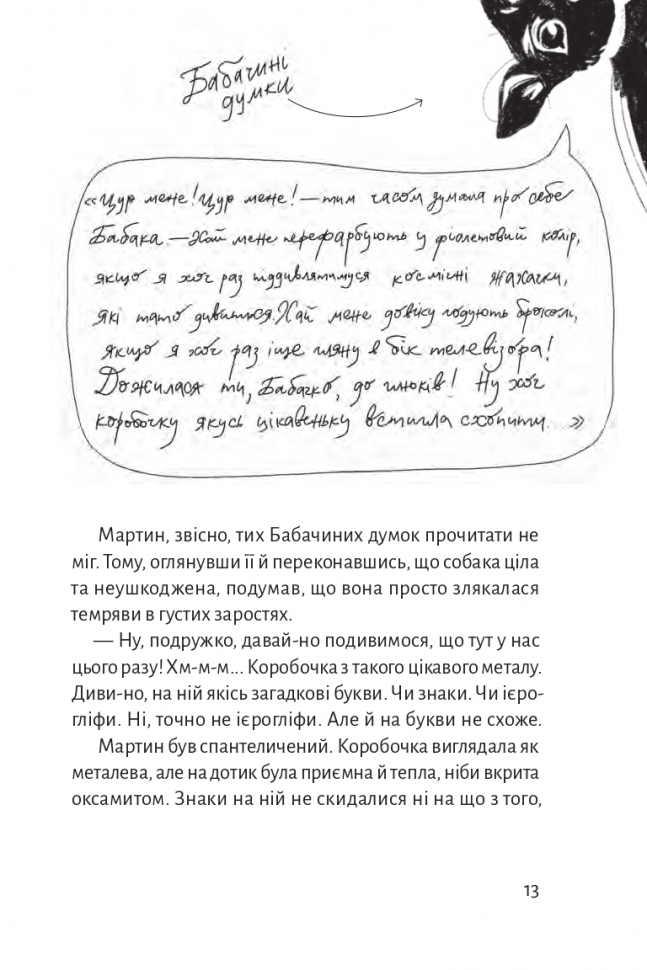 Бабачині
думки
«Цур мене! Цур мене! — тим часом думала про себе
Бабака. — Хай мене перефарбують у фіолетовий колір,
якщо я хоч раз піддивлятимуся космічні жахачки,
які тато дивиться. Хай мене довіку годують броколі,
якщо я хоч раз іще гляну в бік телевізора!
Дожилася ти, Бабачко, до глюків! Ну хоч
коробочку якусь цікавеньку встигла схопити. »
Мартин, звісно, тих Бабачиних думок прочитати не
міг. Тому, оглянувши її й переконавшись, що собака ціла
та неушкоджена, подумав, що вона просто злякалася
темряви в густих заростях.
— Ну, подружко, давай-но подивимося, що тут у нас
цього разу! Хм-м-м... Коробочка з такого цікавого металу.
Диви-но, на ній якісь загадкові букви. Чи знаки. Чи ієро-
гліфи. Ні, точно не ієрогліфи. Але й на букви не схоже.
Мартин був спантеличений. Коробочка виглядала як
металева, але на дотик була приємна й тепла, ніби вкрита
оксамитом. Знаки на ній не скидалися ні на що з того,
13